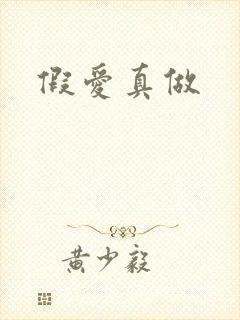 假愛真做
黃少毅